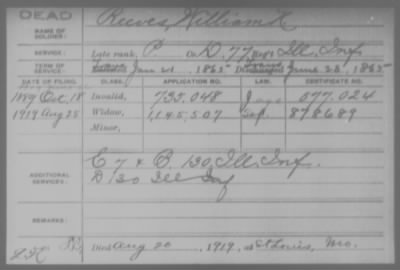 DEAD
NAME OF SOLDIER: Reeves, William H
SERVICE: Late rank, P. Co. D, 77 Reg't Ill. Inf.
TERM OF SERVICE: Enlisted Jan 21, 1865 Discharged June 28, 1865
DATE OF FILING. CLASS. APPLICATION NO. LAW. CERTIFICATE NO.
1889 Oct. 18 Invalid, 735.048 677.024
1919 Aug 25 Widow, 1,145,507 878689
Minor,
ADDITIONAL SERVICES: C 77 & B. 130, Ill. Inf.
D 130 Ill Inf
REMARKS:
Died Aug 20, 1919, at St Louis, Mo.